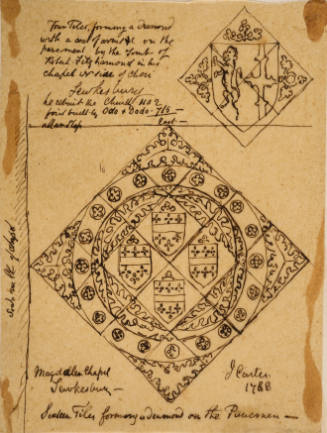 Four Tiles, forming a Diamond
with a coat of arms &c on the
pavement by the Tomb of
Robert Fitzhamond in his
chapel N side of Choir
Tewkesbury
he rebuilt the Church 1102
first built by Odo & Dodo 715
East
Magdalen Chapel
Tewkesbury —
J Carter
1788
Sixteen Tiles forming a diamond on the Pavement —